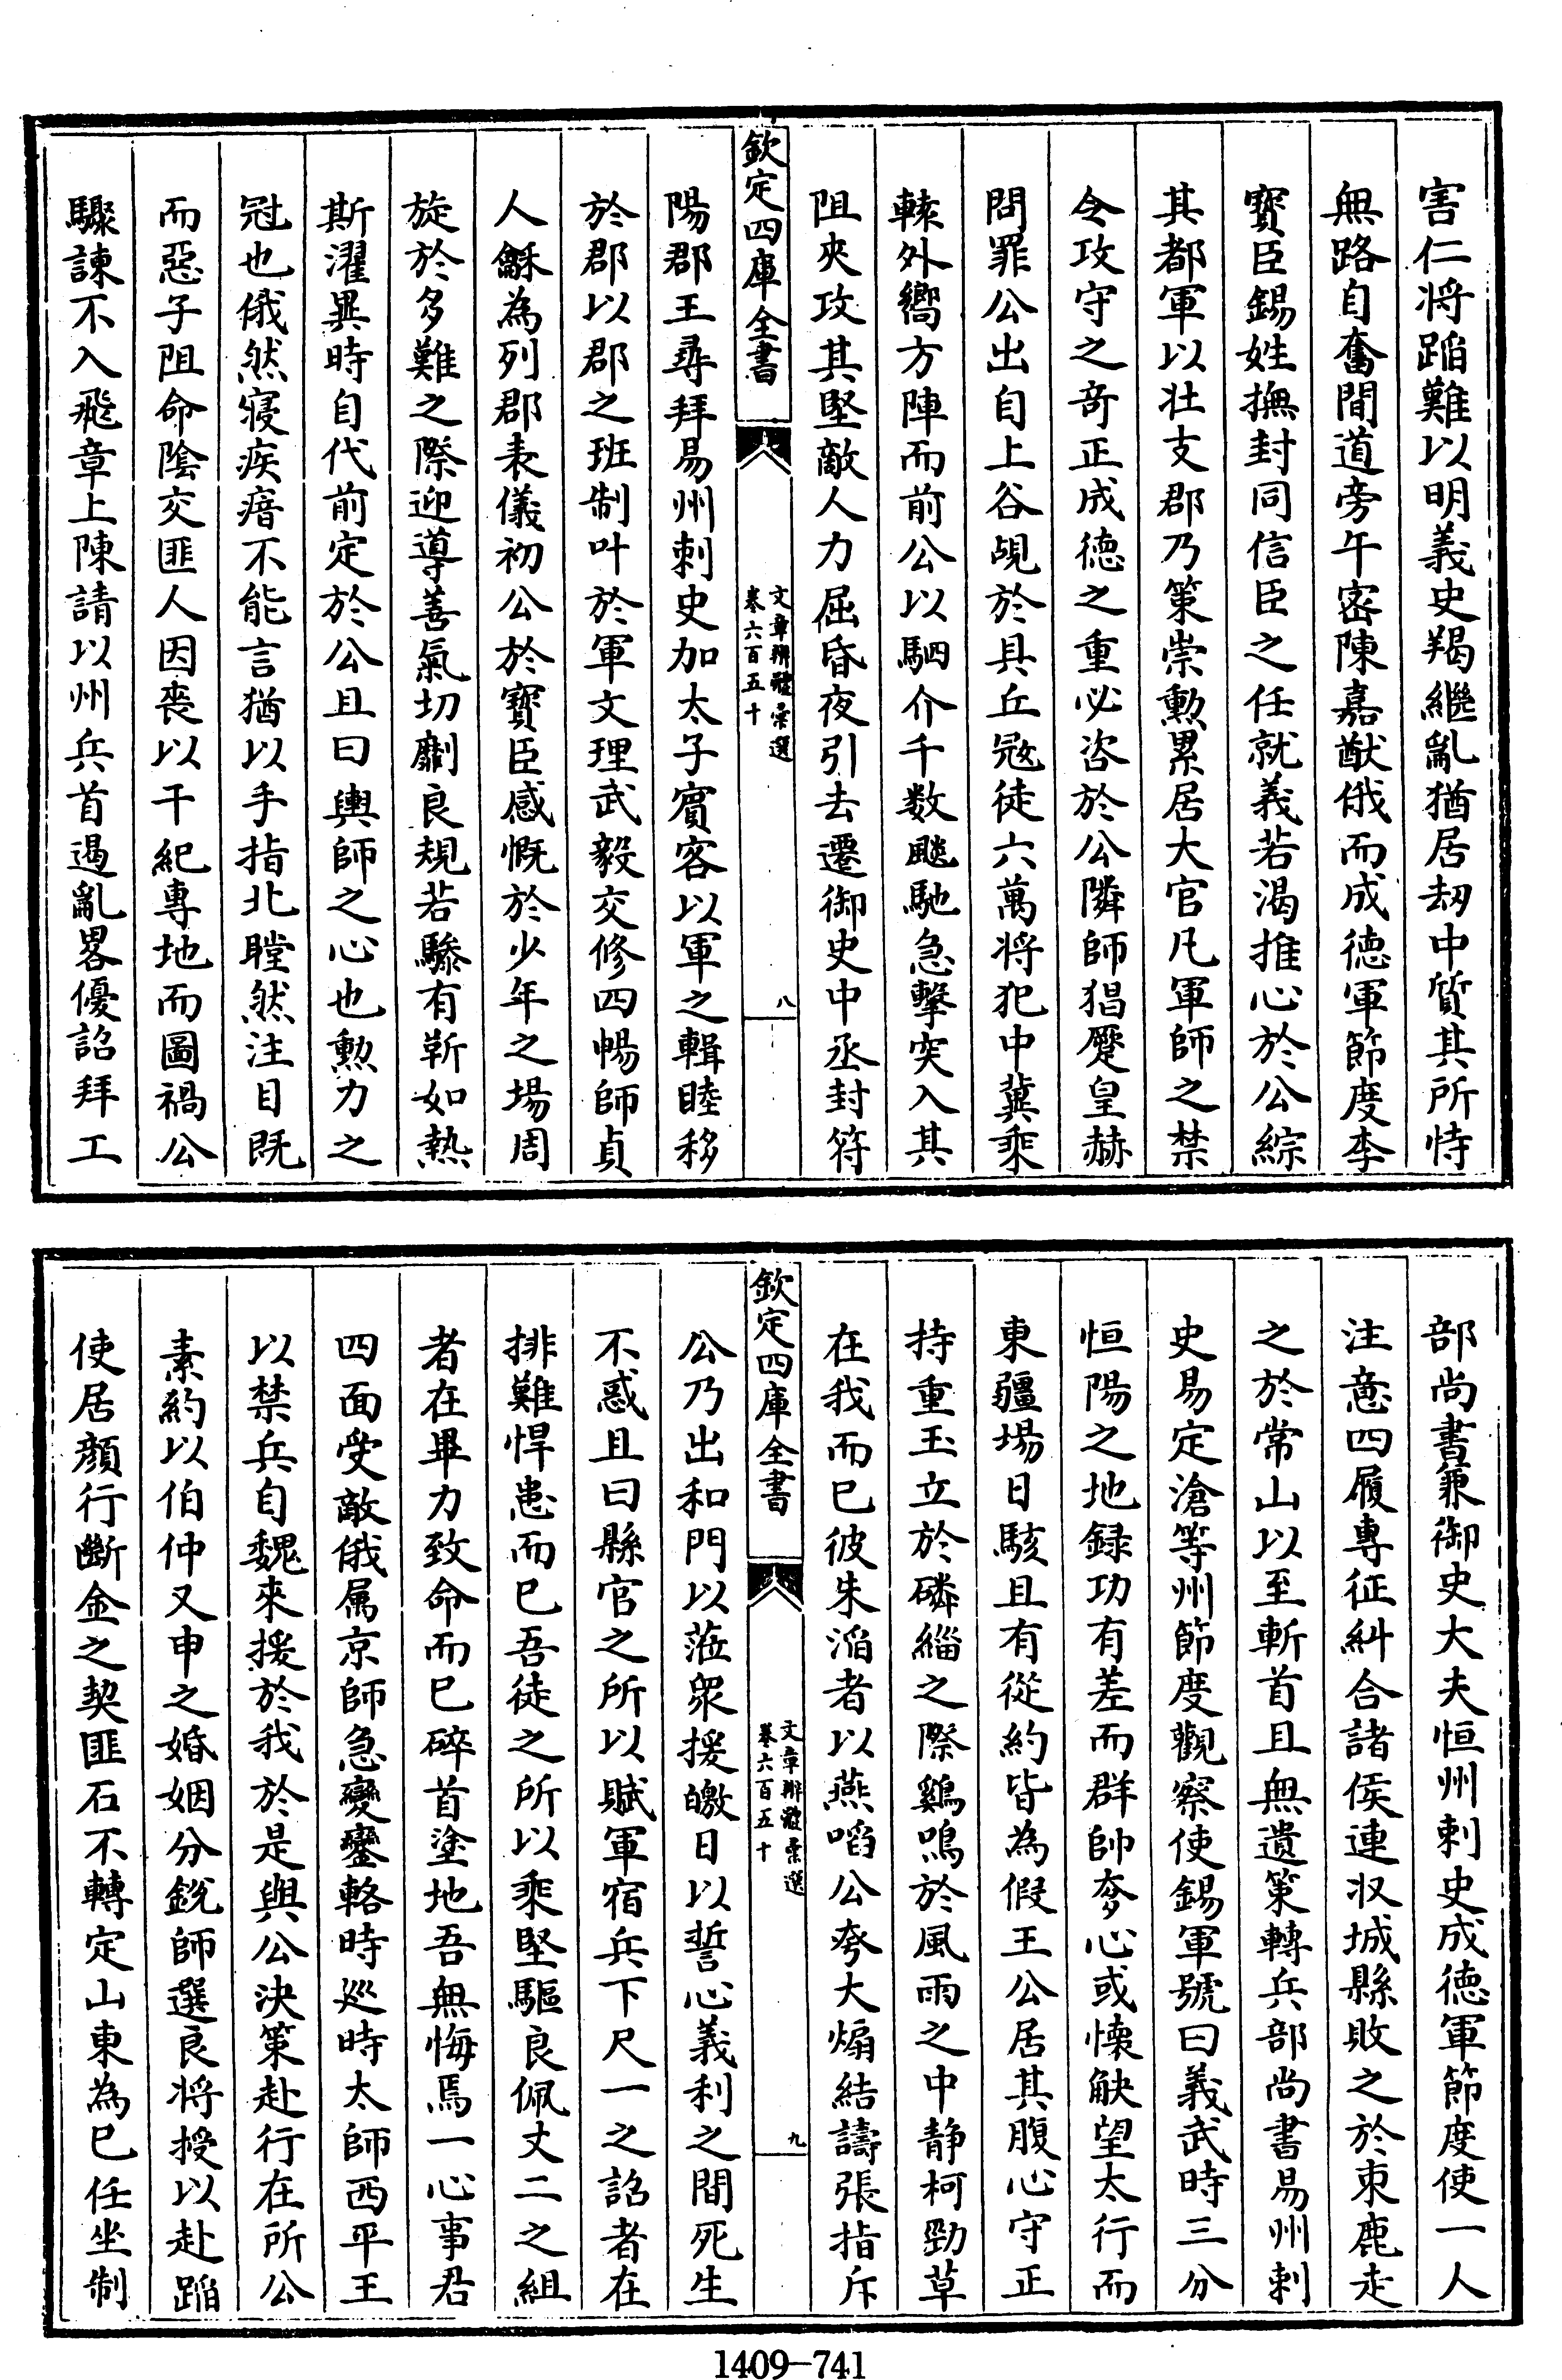 害仁将蹈難以明義史羯繼亂猶居刼中質其所恃
無路自奮間道旁午密陳嘉猷俄而成徳軍節度李
寳臣錫姓撫封同信臣之任就義若渴推心於公綜
其都軍以壮支郡乃策崇勲累居大官凡軍師之禁
令攻守之竒正成徳之重必咨於公隣師猖蹷皇赫
問罪公出自上谷覘於具丘冦徒六萬将犯中冀乘
轅外嚮方陣而前公以駟介千数颷馳急擊突入其
阻夾攻其堅敵人力屈昏夜引去遷御史中丞封符
欽定四庫全書
文章辨體彙選
卷六百五十
八
陽郡王尋拜易州刺史加太子賔客以軍之輯睦移
於郡以郡之班制叶於軍文理武毅交修四暢師貞
人龢為列郡表儀初公於寳臣感慨於少年之場周
旋於多難之際迎導善氣切劘良規若驂有靳如熱
斯濯異時自代前定於公且曰輿師之心也勲力之
冠也俄然寢疾瘖不能言猶以手指北瞠然注目既
而惡子阻命隂交匪人因喪以干紀専地而圖禍公
驟諫不入飛章上陳請以州兵首遏亂畧優詔拜工
部尚書兼御史大夫恒州刺史成徳軍節度使一人
注意四履専征糾合諸侯連収城縣敗之於束鹿走
之於常山以至斬首且無遺策轉兵部尚書易州刺
史易定滄等州節度觀察使錫軍號曰義武時三分
恒陽之地録功有差而群帥夸心或懷觖望太行而
東疆場日駭且有從約皆為假王公居其腹心守正
持重玉立於磷緇之際鷄鳴於風雨之中静柯勁草
在我而已彼朱滔者以燕啗公夸大煽結譸張指斥
欽定四庫全書
文章辨體彙選
卷六百五十
九
公乃出和門以蒞衆援皦日以誓心義利之間死生
不惑且曰縣官之所以賦軍宿兵下尺一之詔者在
排難悍患而已吾徒之所以乘堅驅良佩丈二之組
者在畢力致命而已碎首塗地吾無悔焉一心事君
四面受敵俄属京師急變鑾輅時廵時太師西平王
以禁兵自魏來援於我於是與公決策赴行在所公
素約以伯仲又申之婚姻分銳師選良将授以赴蹈
使居顔行斷金之契匪石不轉定山東為已任坐制
1409—741